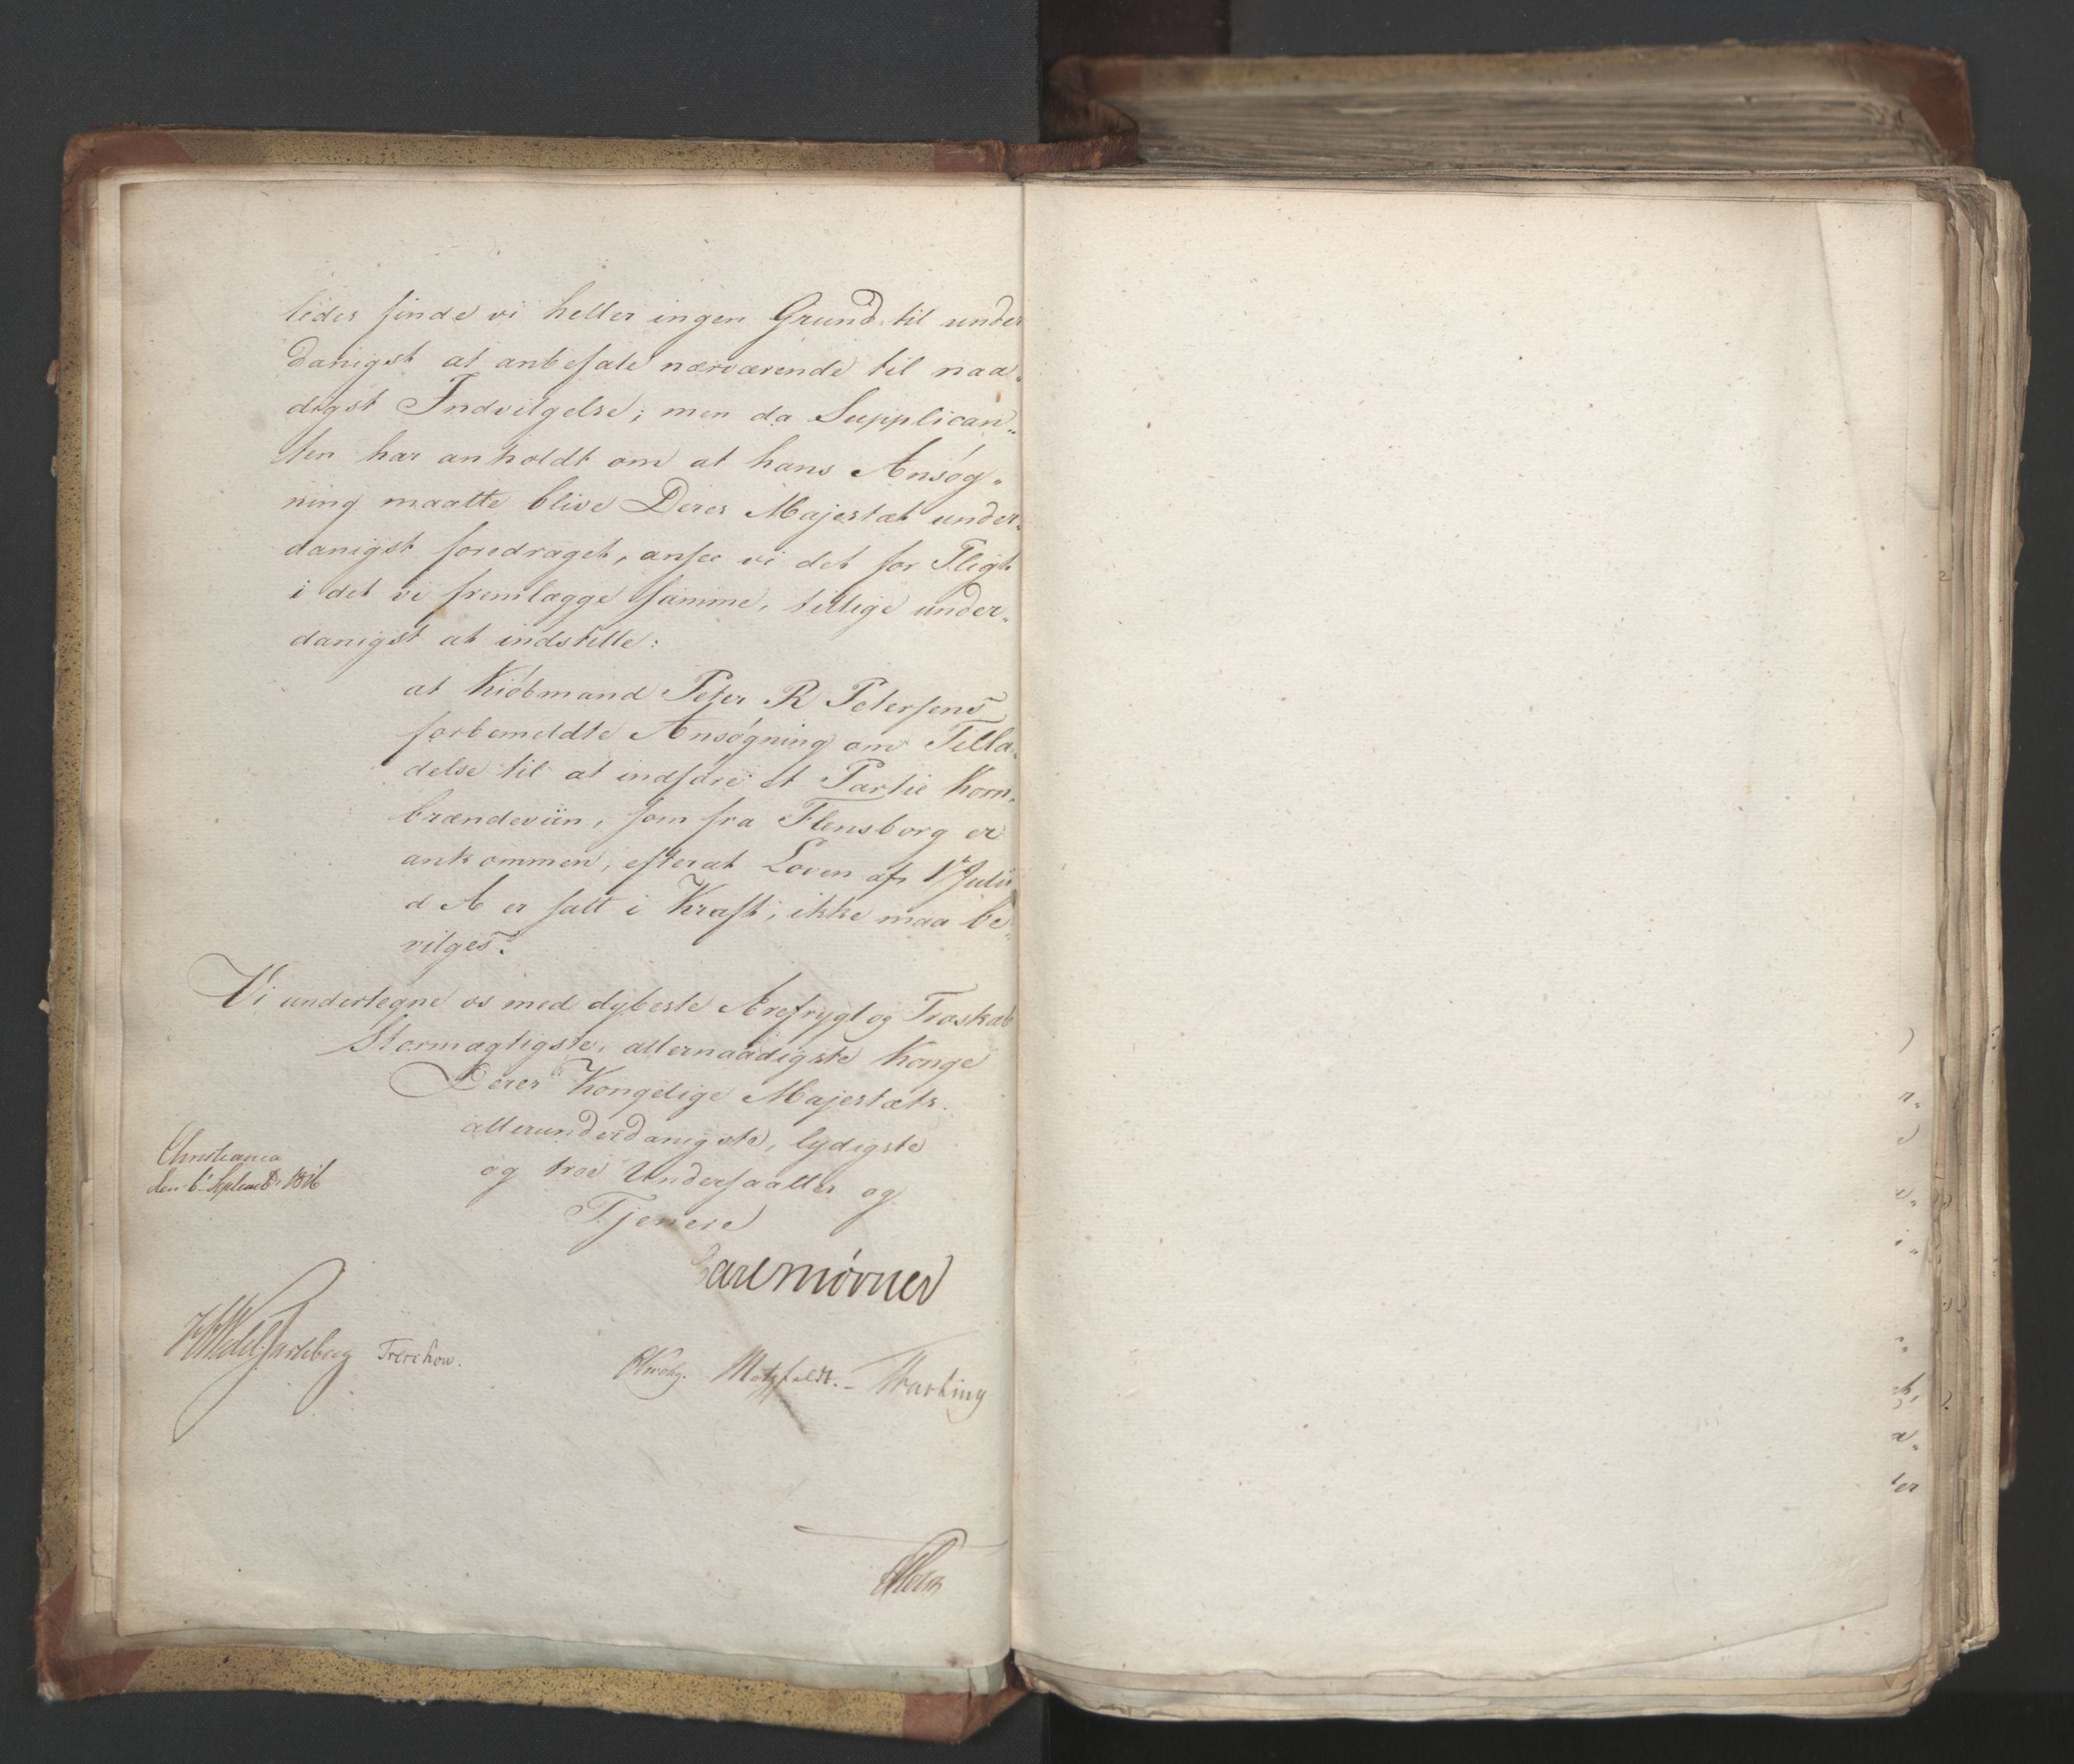 ledes finde vi heller ingen Grund til under
danigst at anbefale nærværende til naa„
digst Indvilgelse; men da Supplican„
ten har anholdt om at hans Ansøg„
ning maatte blive Deres Majestæt under„
danigst foredraget, ansee vi det for Pligt
i det vi fremlægge samme, tillige under„
danigst at indstille:
at Kiøbmand Peter R Petersens
forbemeldte Ansøgning om Tilla„
delse til at indføre et Partie Korn„
brændeviin, som fra Flensborg er
ankommen, efterat Loven af 1ste Julii
d A er satt i Kraft, ikke maa be„
vilges.
Vi undertegne os med dybeste Ærefrygt og Troskab
Stormægtigste, allernaadigste Konge
Deres Kongelige Majestæts
allerunderdanigste, lydigste
og troe Undersaatter og
Tjenere
Christiania
den 6te Septembr 1816
Carl Mörner
HWedel Jarlsberg Treschow.
Krohg. Motzfeldt. Hasting
Holm